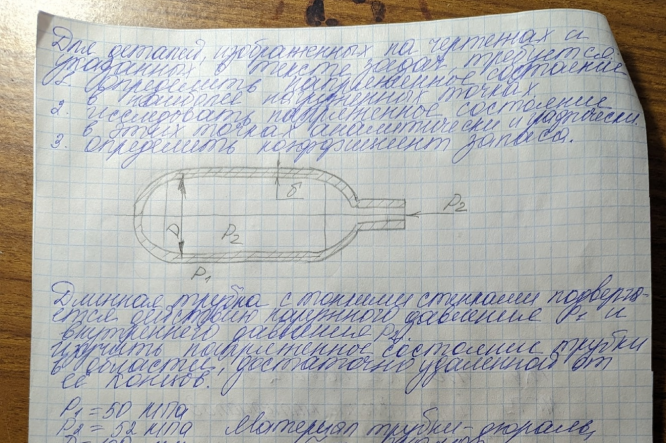 Для деталей, изображенных на чертежах и
указанных в тексте задач требуется
1. определить напряженное состояние
в наиболее напряженных точках
2. исследовать напряженное состояние
в этих точках аналитически и графически.
3. Определить коэффициент запаса.
δ
D
P₂
P₂
P₁
Длинная трубка с тонкими стенками подверга-
ется действию наружного давления P₁ и
внутреннего давления P₂.
Изучить напряженное состояние трубки
в области, достаточно удаленной от
её концов.
P₁ = 50 МПа
P₂ = 52 МПа Материал трубки - дюраль,